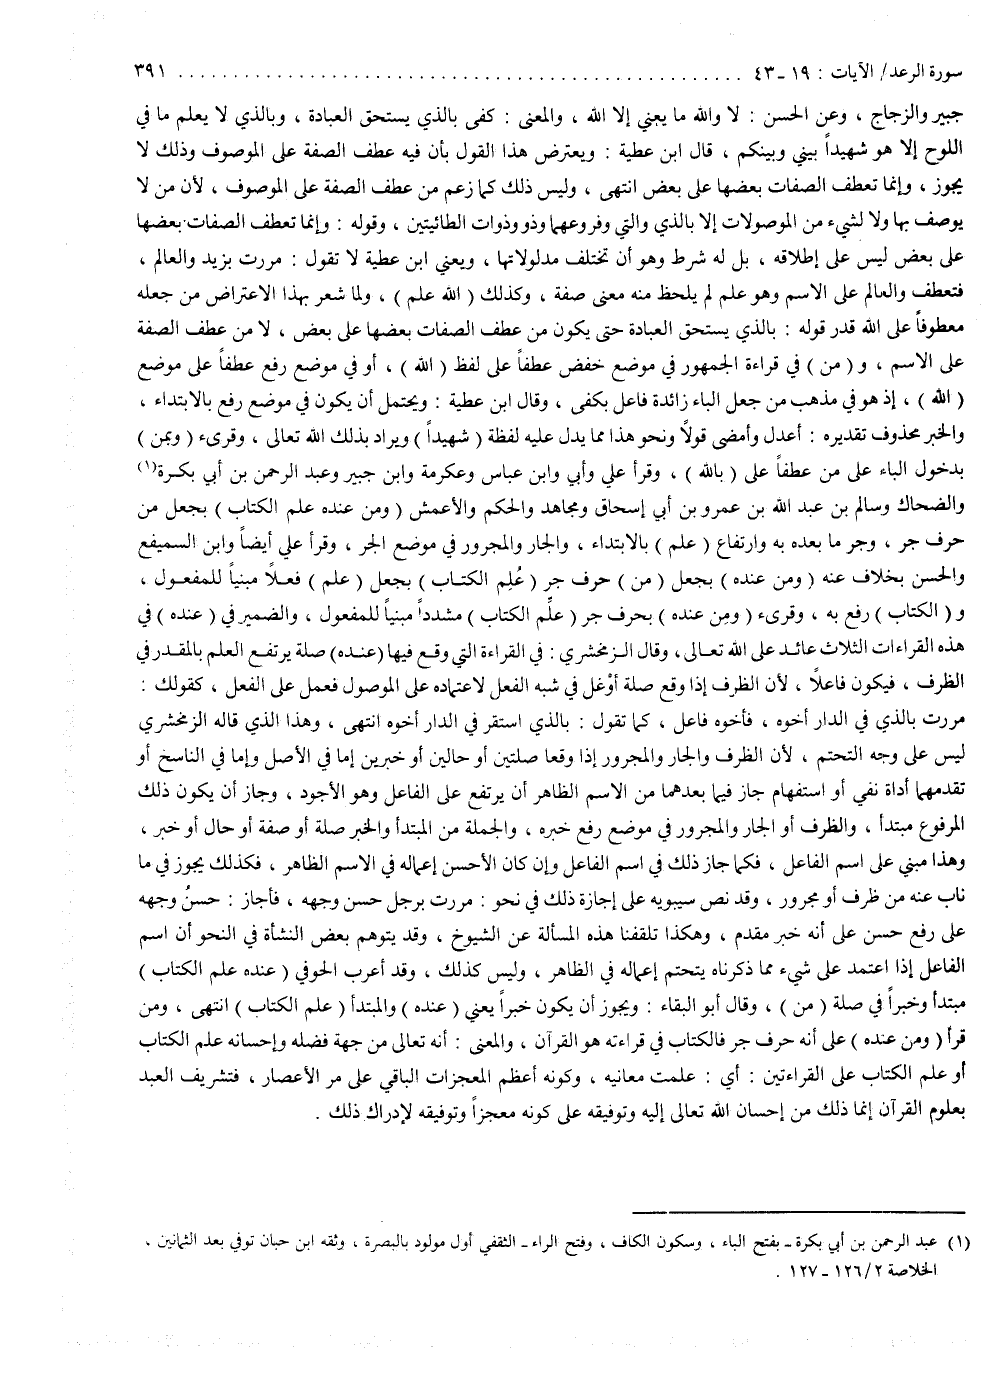 سورة الرعد/ الآيات : ١٩ - ٤٣ ........................................................ ٣٩١
جبير والزجاج ، وعن الحسن : لا والله ما يعني إلا الله ، والمعنى : كفى بالذي يستحق العبادة ، وبالذي لا يعلم ما في
اللوح إلا هو شهيداً بيني وبينكم ، قال ابن عطية : ويعترض هذا القول بأن فيه عطف الصفة على الموصوف وذلك لا
يجوز ، وإنما تعطف الصفات بعضها على بعض انتهى ، وليس ذلك كما زعم من عطف الصفة على الموصوف ، لأن من لا
يوصف بها ولا لشيء من الموصولات إلا بالذي والتي وفروعهما وذو وذوات الطائيتين ، وقوله : وإنما تعطف الصفات بعضها
على بعض ليس على إطلاقه ، بل له شرط وهو أن تختلف مدلولاتها ، ويعني ابن عطية لا تقول : مررت بزيد والعالم ،
فتعطف والعالم على الاسم وهو علم لم يلحظ منه معنى صفة ، وكذلك ( الله علم ) ، ولما شعر بهذا الاعتراض من جعله
معطوفاً على الله قدر قوله : بالذي يستحق العبادة حتى يكون من عطف الصفات بعضها على بعض ، لا من عطف الصفة
على الاسم ، و ( من ) في قراءة الجمهور في موضع خفض عطفاً على لفظ ( الله ) ، أو في موضع رفع عطفاً على موضع
( الله ) ، إذ هو في مذهب من جعل الباء زائدة فاعل بكفى ، وقال ابن عطية : ويحتمل أن يكون في موضع رفع بالابتداء ،
والخبر محذوف تقديره : أعدل وأمضى قولاً ونحو هذا مما يدل عليه لفظة ( شهيداً ) ويراد بذلك الله تعالى ، وقرىء ( وبمن )
بدخول الباء على من عطفاً على ( بالله ) ، وقرأ علي وأبي وابن عباس وعكرمة وابن جبير وعبد الرحمن بن أبي بكرة(١)
والضحاك وسالم بن عبد الله بن عمرو بن أبي إسحاق ومجاهد والحكم والأعمش ( ومن عنده علم الكتاب ) بجعل من
حرف جر ، وجر ما بعده به وارتفاع ( علم ) بالابتداء ، والجار والمجرور في موضع الجر ، وقرأ علي أيضاً وابن السميفع
والحسن بخلاف عنه ( ومن عنده ) بجعل ( من ) حرف جر ( عُلِم الكتاب ) بجعل ( علم ) فعلاً مبنياً للمفعول ،
و ( الكتاب ) رفع به ، وقرىء ( ومِن عنده ) بحرف جر ( علِّم الكتاب ) مشدداً مبنياً للمفعول ، والضمير في ( عنده ) في
هذه القراءات الثلاث عائد على الله تعالى، وقال الزمخشري : في القراءة التي وقع فيها (عنده) صلة يرتفع العلم بالمقدر في
الظرف ، فيكون فاعلاً ، لأن الظرف إذا وقع صلة أوْغل في شبه الفعل لاعتماده على الموصول فعمل على الفعل ، كقولك :
مررت بالذي في الدار أخوه ، فأخوه فاعل ، كما تقول : بالذي استقر في الدار أخوه انتهى ، وهذا الذي قاله الزمخشري
ليس على وجه التحتم ، لأن الظرف والجار والمجرور إذا وقعا صلتين أو حالين أو خبرين إما في الأصل وإما في الناسخ أو
تقدمهما أداة نفي أو استفهام جاز فيما بعدهما من الاسم الظاهر أن يرتفع على الفاعل وهو الأجود ، وجاز أن يكون ذلك
المرفوع مبتدأ ، والظرف أو الجار والمجرور في موضع رفع خبره ، والجملة من المبتدأ والخبر صلة أو صفة أو حال أو خبر ،
وهذا مبني على اسم الفاعل ، فكما جاز ذلك في اسم الفاعل وإن كان الأحسن إعماله في الاسم الظاهر ، فكذلك يجوز في ما
ناب عنه من ظرف أو مجرور ، وقد نص سيبويه على إجازة ذلك في نحو : مررت برجل حسن وجهه ، فأجاز : حسنٌ وجهه
على رفع حسن على أنه خبر مقدم ، وهكذا تلقفنا هذه المسألة عن الشيوخ ، وقد يتوهم بعض النشأة في النحو أن اسم
الفاعل إذا اعتمد على شيء مما ذكرناه يتحتم إعماله في الظاهر ، وليس كذلك ، وقد أعرب الحوفي ( عنده علم الكتاب )
مبتدأ وخبراً في صلة ( من ) ، وقال أبو البقاء : ويجوز أن يكون خبراً يعني ( عنده ) والمبتدأ ( علم الكتاب ) انتهى ، ومن
قرأ ( ومن عنده ) على أنه حرف جر فالكتاب في قراءته هو القرآن ، والمعنى : أنه تعالى من جهة فضله وإحسانه علم الكتاب
أو علم الكتاب على القراءتين : أي : علمت معانيه ، وكونه أعظم المعجزات الباقي على مر الأعصار ، فتشريف العبد
بعلوم القرآن إنما ذلك من إحسان الله تعالى إليه وتوفيقه على كونه معجزاً وتوفيقه لإدراك ذلك .
(١) عبد الرحمن بن أبي بكرة - بفتح الباء ، وسكون الكاف ، وفتح الراء - الثقفي أول مولود بالبصرة ، وثقه ابن حبان توفي بعد الثمانين ،
الخلاصة ١٢٦/٢ - ١٢٧ .